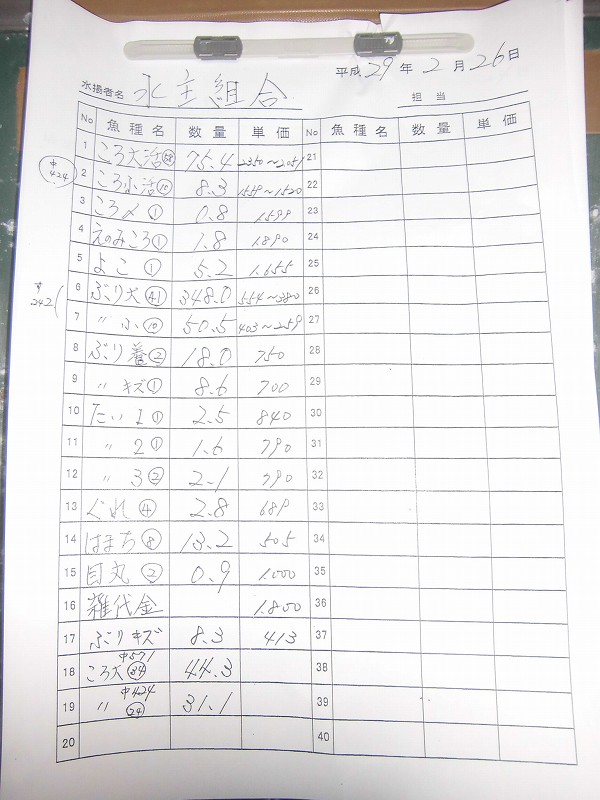 平成 29 年 2 月 26 日
水揚者名 水主組合
担当
No 魚種名 数量 単価 No 魚種名 数量 単価
1 ころ大活 58 75.4 2350～2059 21
中 424
2 ころ小活 10 8.3 1559～1520 22
3 ころ〆 1 0.8 1599 23
4 えのみころ 1 1.8 1.890 24
5 よこ 1 5.2 1.655 25
6 ぶり大 41 348.0 554～380 26
中 242
7 〃 小 10 50.5 403～259 27
8 ぶり着 2 18.0 750 28
9 〃 キズ 1 8.6 700 29
10 たい 1 1 2.5 840 30
11 〃 2 1 1.6 790 31
12 〃 3 2 2.1 390 32
13 ぐれ 4 2.8 689 33
14 はまち 8 13.2 505 34
15 目丸 2 0.9 1.000 35
16 雑代金 1.800 36
17 ぶりキズ 8.3 413 37
18 ころ大 中571 34 44.3 38
19 〃 中424 24 31.1 39
20 40